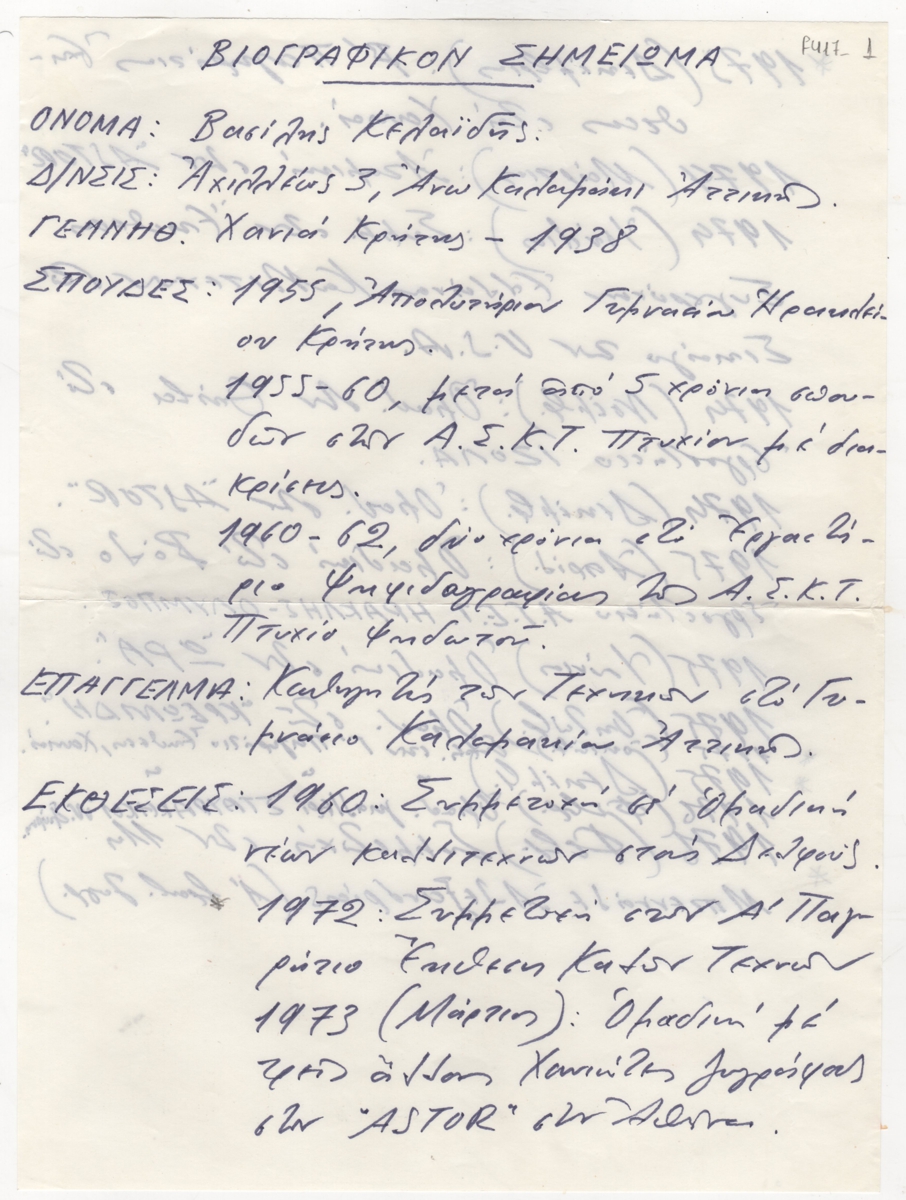 F417- 1
ΒΙΟΓΡΑΦΙΚΟΝ ΣΗΜΕΙΩΜΑ
ΟΝΟΜΑ: Βασίλης Κελαϊδῆς.
Δ/ΝΣΙΣ: Ἀχιλλέως 3, Ἄνω Καλαμάκι Ἀττικῆς.
ΓΕΝΝΗΘ. Χανιά Κρήτης - 1938
ΣΠΟΥΔΕΣ: 1955, Ἀπολυτήριον Γυμνασίου Ἡρακλεί-
ου Κρήτης.
1955-60, μετά ἀπό 5 χρόνια σπου-
δῶν στήν Α.Σ.Κ.Τ. Πτυχίον μέ δια-
κρίσεις.
1960-62, δύο χρόνια στό Ἐργαστή-
ριο Ψηφιδογραφίας τῆς Α.Σ.Κ.Τ.
Πτυχίο ψηφιδωτοῦ.
ΕΠΑΓΓΕΛΜΑ: Καθηγητής τῶν Τεχνικῶν στό Γυ-
μνάσιο Καλαμακίου Ἀττικῆς.
ΕΚΘΕΣΕΙΣ: 1960: Συμμετοχή σέ Ὁμαδική
νέων καλλιτεχνῶν στούς Δελφούς.
* 1972: Συμμετοχή στήν Α' Παγκ-
ρήτιο Ἔκθεση Καλῶν Τεχνῶν
1973 (Μάρτιος): Ὁμαδική μέ
τρεῖς ἄλλους Χανιῶτες ζωγράφους
στήν "ASTOR" στήν Ἀθήνα.